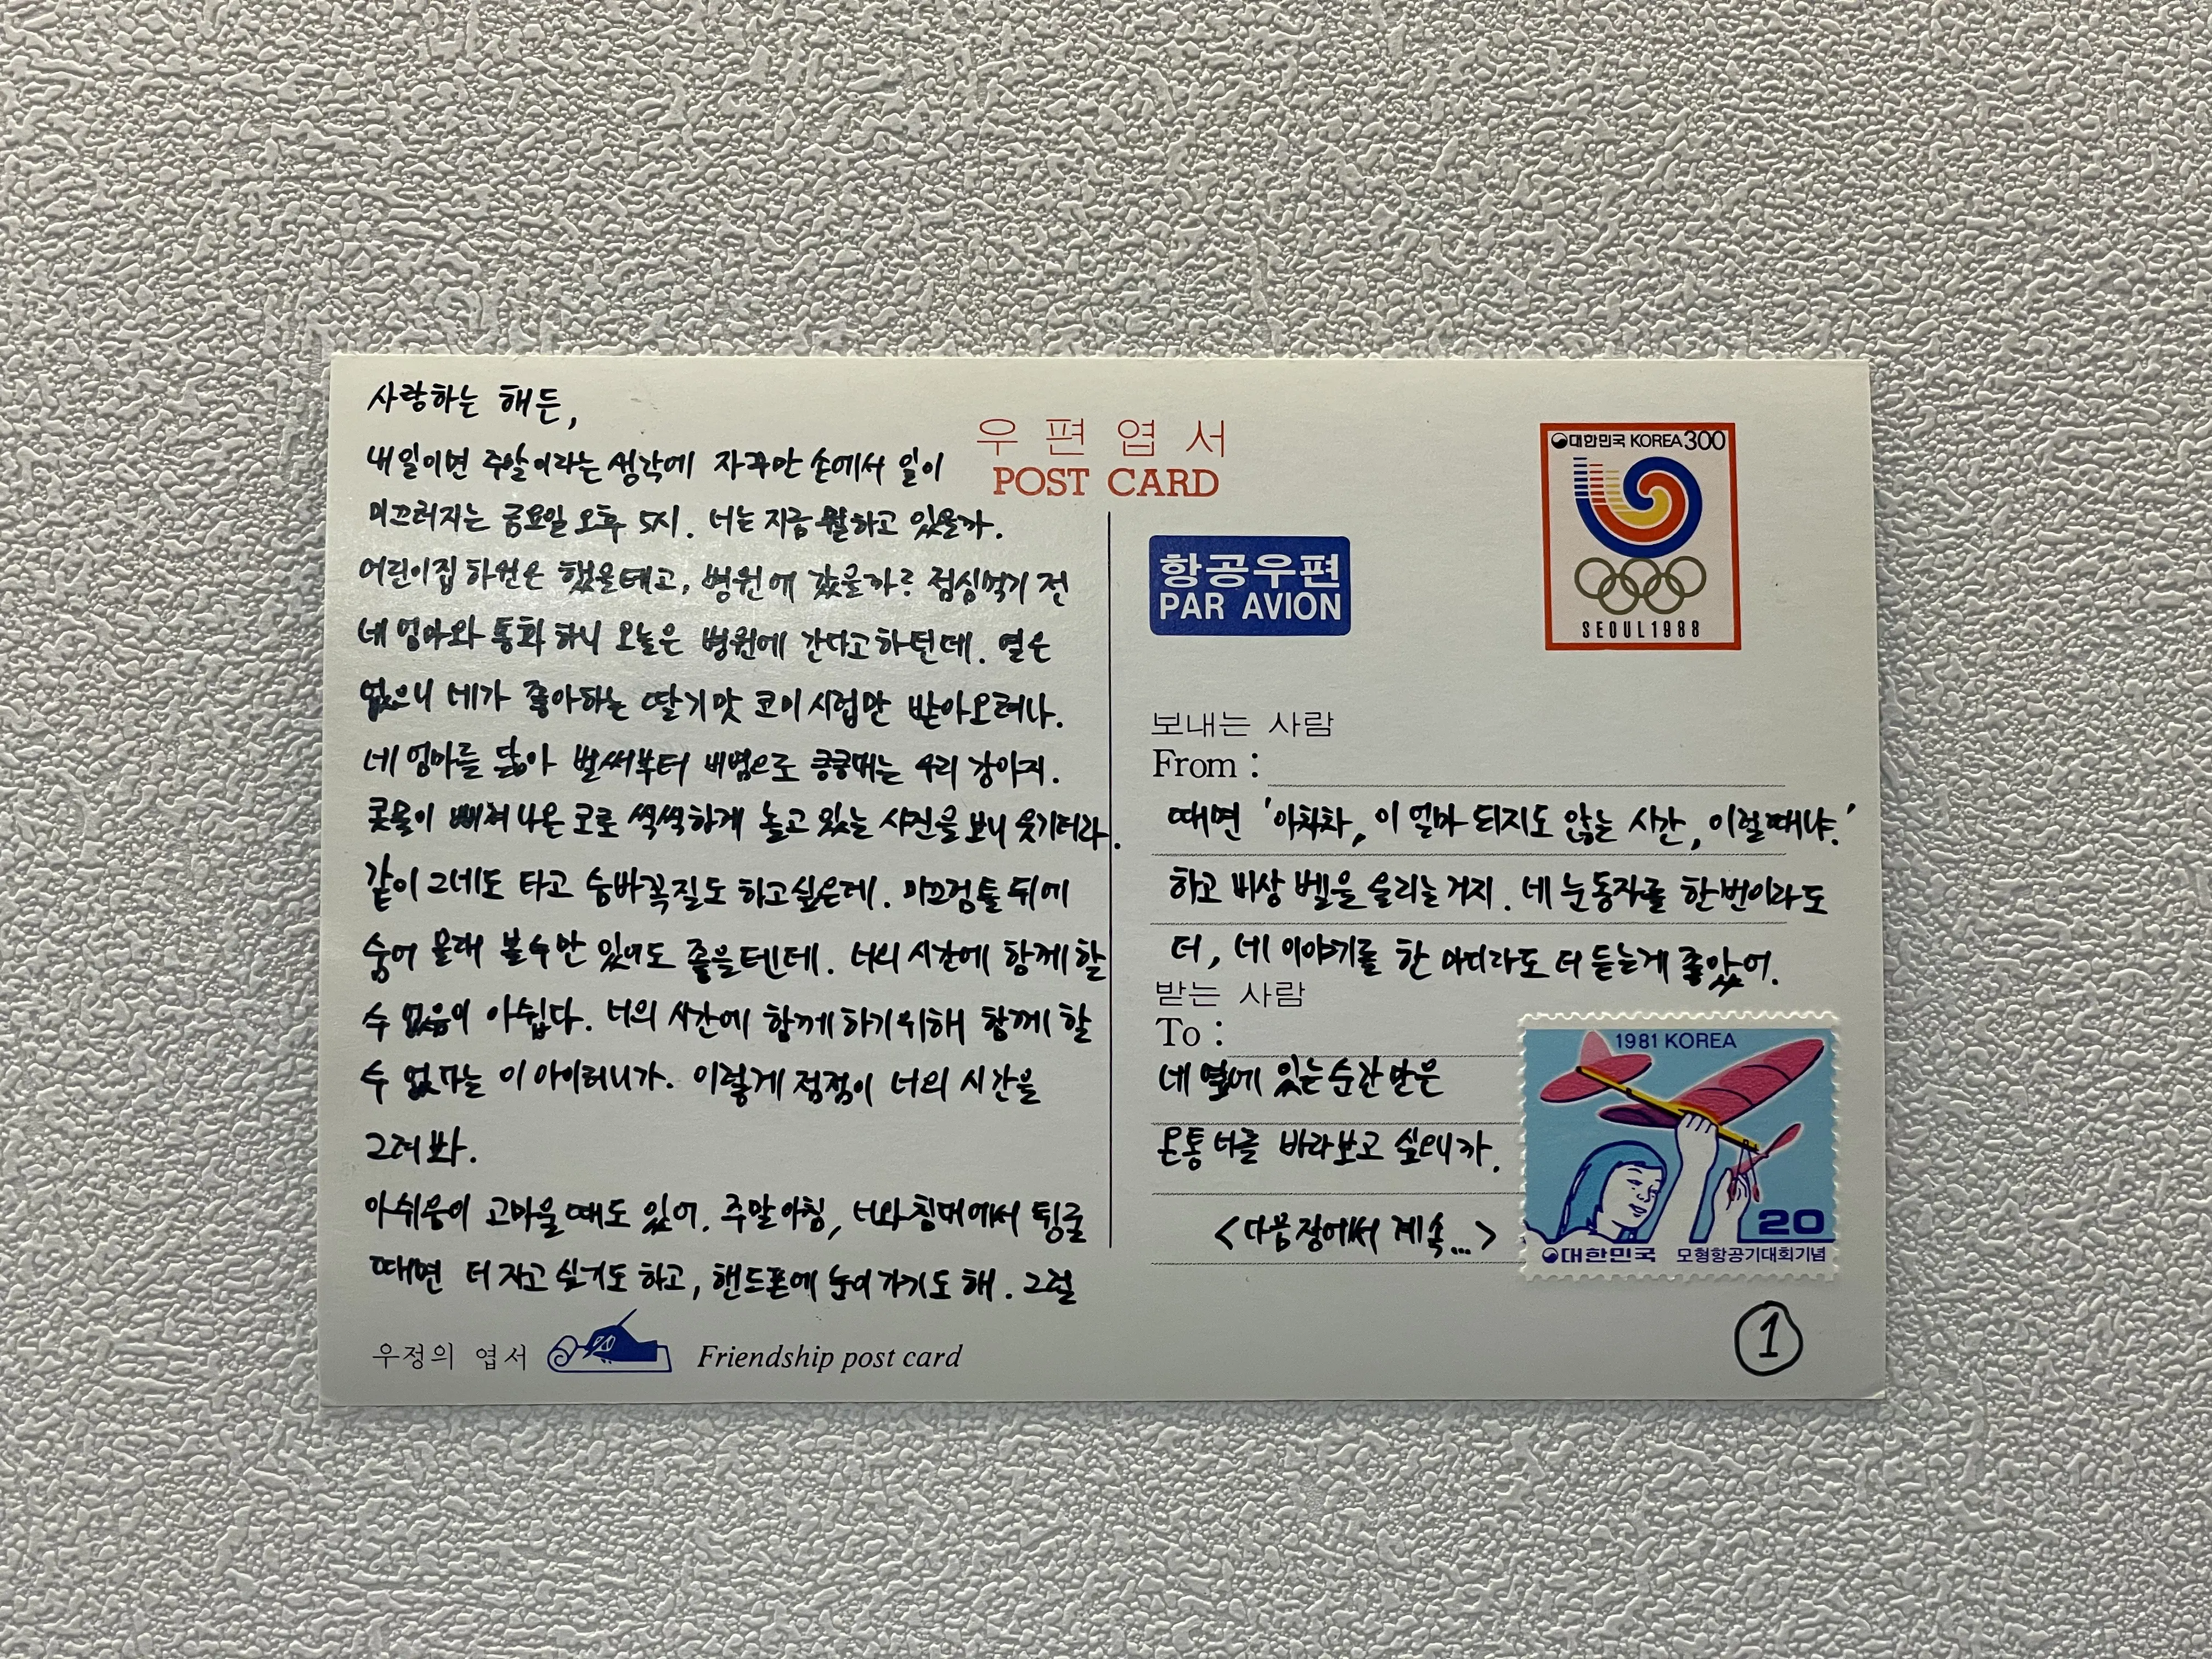 사랑하는 해든,
내일이면 주말이라는 생각에 자꾸만 손에서 일이
미끄러지는 금요일 오후 5시. 너는 지금 뭘하고 있을까.
어린이집 하원은 했을테고, 병원에 갔을까? 점심먹기 전
네 엄마와 통화하니 오늘은 병원에 간다고 하던데. 열은
없으니 네가 좋아하는 딸기맛 코미시럽만 받아오려나.
네 엄마를 닮아 벌써부터 비염으로 킁킁대는 우리 강아지.
콧물이 삐져나온 코로 씩씩하게 놀고 있는 사진을 보니 웃기더라.
같이 그네도 타고 숨바꼭질도 하고싶은데. 미끄럼틀 뒤에
숨어 몰래 볼수만 있어도 좋을텐데. 너의 시간에 함께 할
수 없음이 아쉽다. 너의 시간에 함께하기위해 함께 할
수 없다는 이 아이러니가. 이렇게 멀찍이 너의 시간을
그려봐.
아쉬움이 고마울때도 있어. 주말아침, 너와 침대에서 뒹굴
때면 더 자고 싶기도 하고, 핸드폰에 눈이 가기도 해. 그럴
우편엽서
POST CARD
항공우편
PAR AVION
대한민국 KOREA 300
SEOUL 1988
보내는 사람
From :
때면 '아차차, 이 얼마 되지도 않는 시간, 이럴때냐.'
하고 비상 벨을 울리는거지. 네 눈동자를 한번이라도
더, 네 이야기를 한 마디라도 더 듣는게 좋았어.
받는 사람
To :
네 옆에 있는 순간 만은
온통 너를 바라보고 싶으니까.
<다음장에서 계속...>
1981 KOREA
20
대한민국 모형항공기대회기념
우정의 엽서 Friendship post card
①